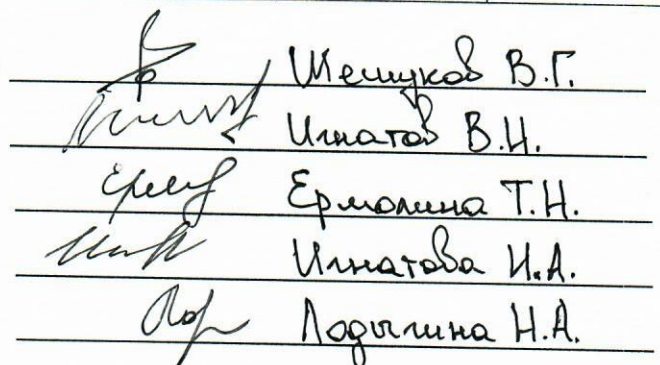 Шешуков В.Г.
Игнатов В.Н.
Ермолина Т.Н.
Игнатова Н.А.
Лодыгина Н.А.